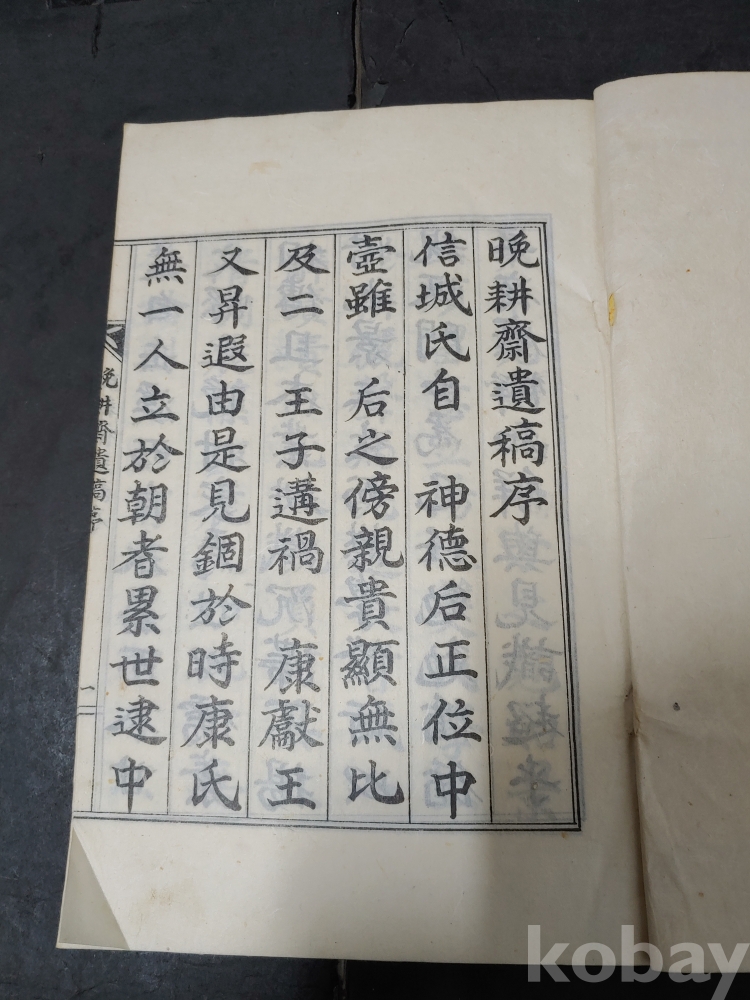 晩耕齋遺稿序
信城氏自 神德后正位中
壼雖 后之傍親貴顯無比
及二 王子遘禍 康獻王
又昇遐由是見錮於時康氏
無一人立於朝者累世逮中
晩耕齋遺稿序
一
kobay